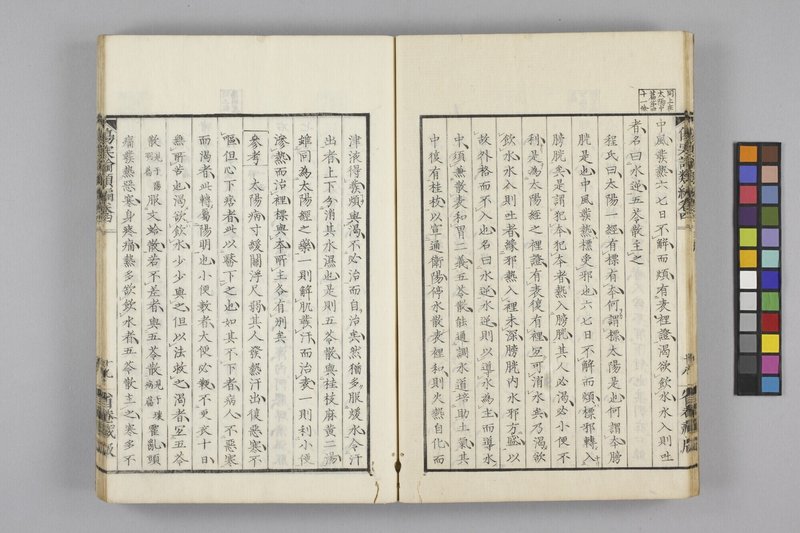 同上在
太陽中
篇第四
十一條
中風發熱六七日不解而煩有表裡證渴欲飲水水入則吐
者名曰水逆五苓散主之
程氏曰太陽一經有標有本何謂標太陽是也何謂本膀
胱是也中風發熱標受邪也六七日不解而煩標邪轉入
膀胱矣是謂犯本犯本者熱入膀胱其人必渴必小便不
利是為太陽經之裡證有表復有裡宜可消水矣乃渴欲
飲水水入則吐者緣邪熱入裡未深膀胱內水邪方盛以
故外格而不入也名曰水逆水逆則以導水為主而導水
中須兼散表和胃二義五苓散能通調水道培助土氣其
中復有桂枝以宣通衛陽停水散表裡和則火熱自化而
津液得發煩與渴不必治而自治矣然猶多服煖水令汗
出者上下分消其水濕也是則五苓散與桂枝麻黃二湯
雖同為太陽經之藥一則解肌發汗而治表一則利小便
滲熱而治裡標與本所主各有別矣
參考 太陽病寸緩關浮尺弱其人發熱汗出復惡寒不
嘔但心下痞者此以醫下之也如其不下者病人不惡寒
而渴者此轉屬陽明也小便數者大便必鞕不更衣十日
無所苦也渴欲飲水少少與之但以法救之渴者宜五苓
散見于陽明篇 服文蛤散若不差者與五苓散見于痰病篇 霍亂頭
痛發熱惡寒身疼痛熱多欲飲水者五苓散主之寒多不
傷寒論類編卷四
傷寒論類編卷四